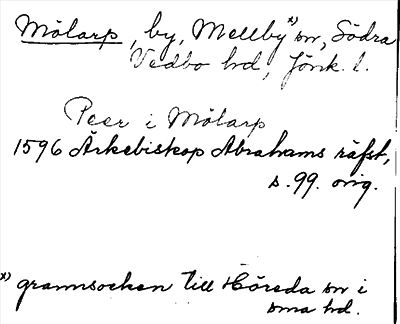 Mölarp, by, Mellby x) sn, Södra
Vedbo hd, Jönk. l.
Peer i Mölarp
1596 Ärkebiskop Abrahams räfst,
s. 99. orig.
x) grannsocken till Höreda sn i
sma hd.